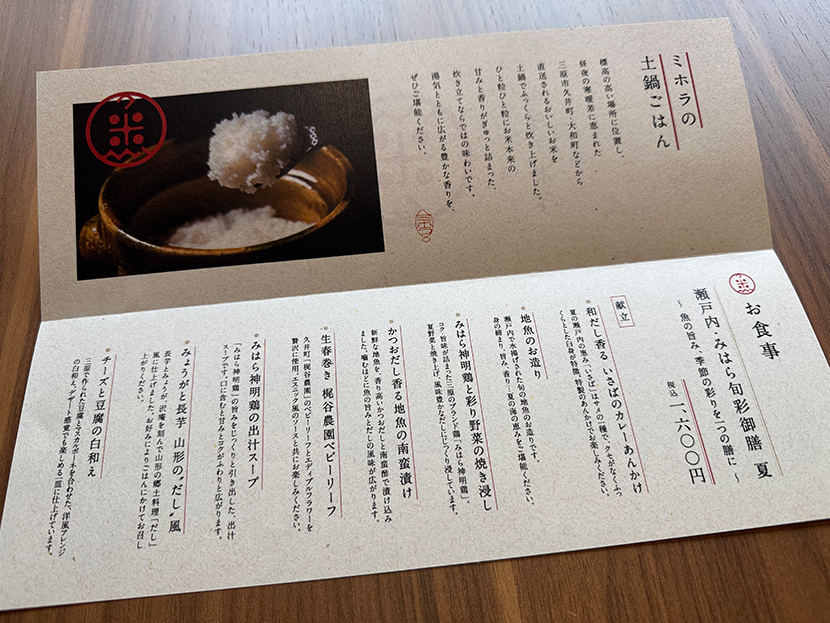 ミホラの
土鍋ごはん
標高の高い場所に位置し、
昼夜の寒暖差に恵まれた
三原市久井町・大和町などから
直送されるおいしいお米を
土鍋でふっくらと炊き上げました。
ひと粒ひと粒にお米本来の
甘みと香りがぎゅっと詰まった、
炊き立てならではの味わいです。
湯気とともに広がる豊かな香りを、
ぜひご堪能ください。
米
お食事
瀬戸内・みはら旬彩御膳 夏
〜 魚の旨み、季節の彩りを一つの膳に 〜
税込 一、六〇〇円
献立
和だし香る いさばのカレーあんかけ
夏の瀬戸内の恵み「いさば」はサメの一種で、クセがなくふっ
くらとした白身が特徴。特製のあんかけでお楽しみください。
地魚のお造り
瀬戸内で水揚げされた旬の地魚のお造りです。
身の締まり、旨み、香り…夏の海の恵みをご堪能ください。
みはら神明鶏と彩り野菜の焼き浸し
コク、旨味が詰まった三原のブランド鶏「みはら神明鶏」。
夏野菜と焼き上げ、風味豊かなだしにじっくり浸しています。
かつおだし香る地魚の南蛮漬け
新鮮な地魚を、香り高いかつおだしと南蛮酢で漬け込み
ました。噛むほどに魚の旨みとだしの風味が広がります。
生春巻き 梶谷農園ベビーリーフ
久井町「梶谷農園」のベビーリーフとエディブルフラワーを
贅沢に使用。エスニック風のソースと共にお楽しみください。
みはら神明鶏の出汁スープ
「みはら神明鶏」の旨みをじっくりと引き出した、出汁
スープです。口に含むと甘みとコクがふわりと広がります。
みょうがと長芋 山形の“だし”風
長芋とみょうが、沢庵を刻んで山形の郷土料理「だし」
風に仕上げました。お好みによりごはんにかけてお召し
上がりください。
チーズと豆腐の白和え
三原で作られた豆腐とマスカルポーネを合わせた、洋風アレンジ
の白和え。デザート感覚でも楽しめる一皿に仕上げています。